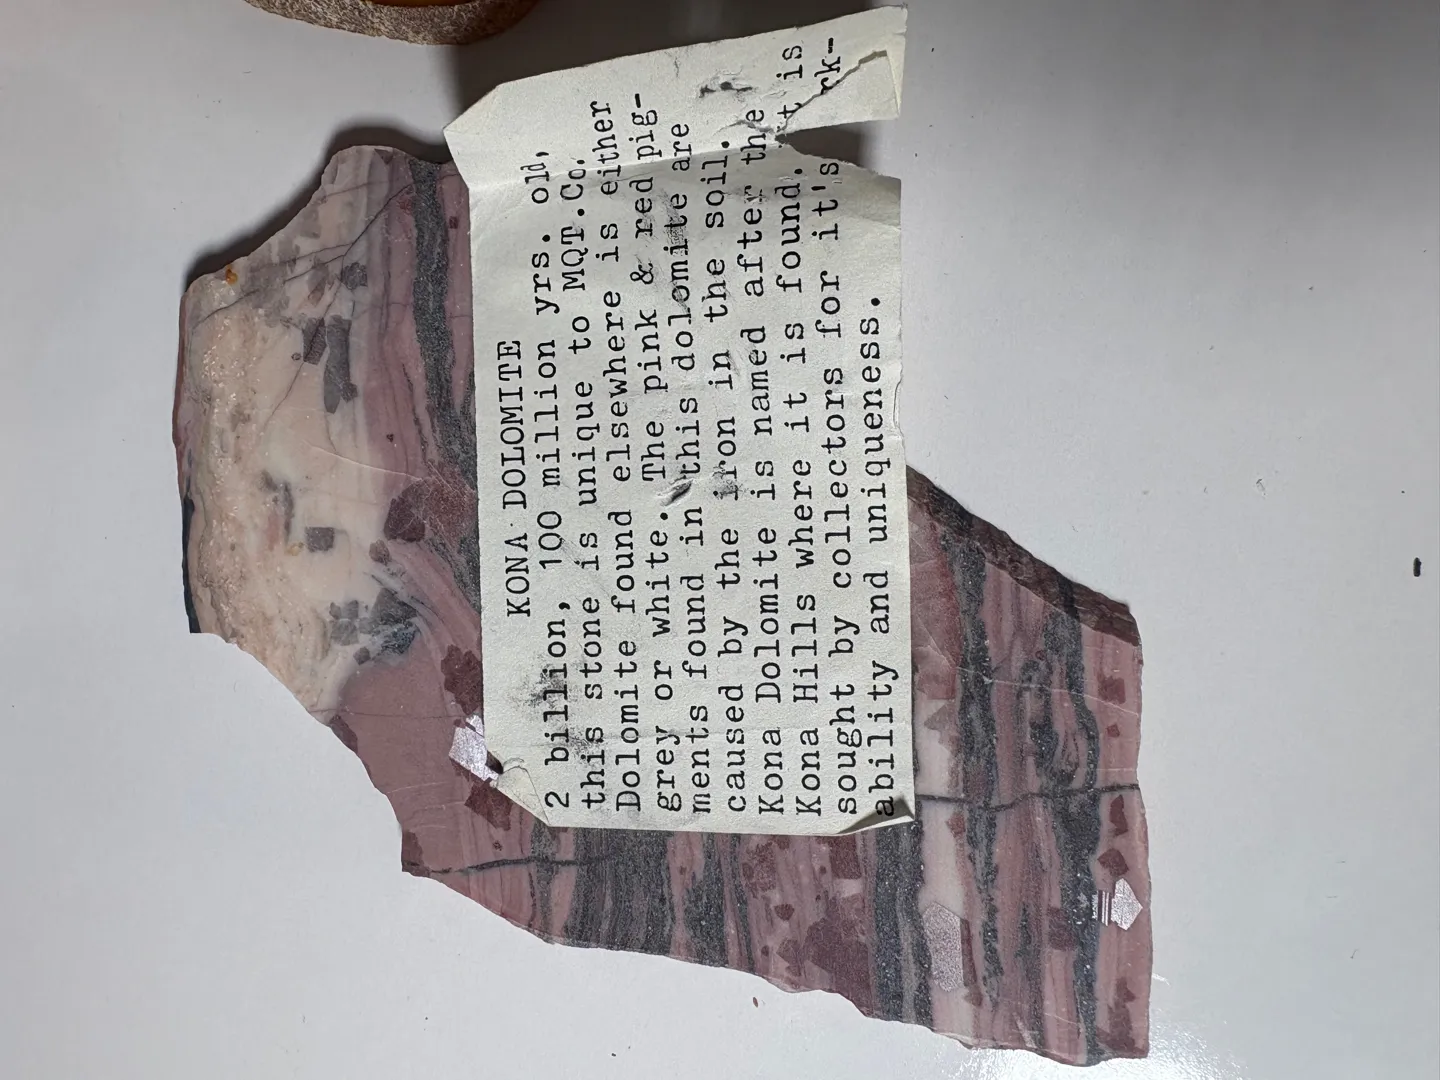 KONA DOLOMITE
2 billion, 100 million yrs. old,
this stone is unique to MQT.Co.
Dolomite found elsewhere is either
grey or white. The pink & red pig-
ments found in this dolomite are
caused by the iron in the soil.
Kona Dolomite is named after the
Kona Hills where it is found. t is
sought by collectors for it's rk-
ability and uniqueness.